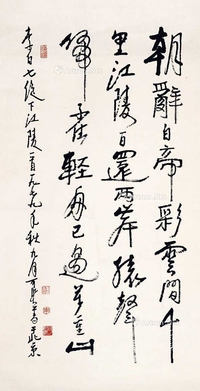 朝辭白帝彩雲間千
里江陵一日還兩岸猿聲
啼不住輕舟已過萬重山
李白七绝下江陵一首一九七九年秋九月